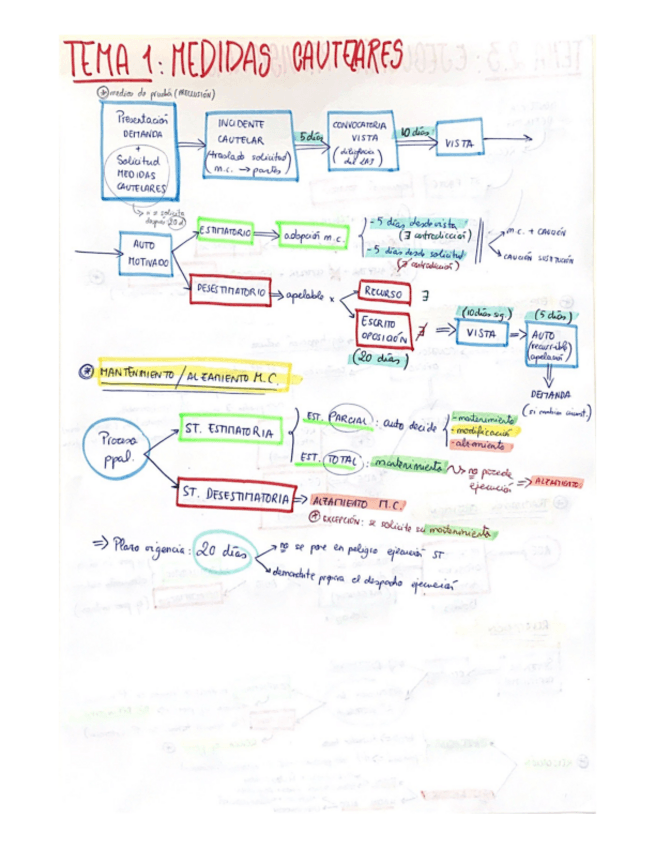 TEMA 1: MEDIDAS CAUTELARES
* medios de prueba (PRECLUSIÓN)
Presentación
DEMANDA
+
Solicitud
MEDIDAS
CAUTELARES
INCIDENTE
CAUTELAR
(traslado solicitud)
m.c. → partes)
5 días
CONVOCATORIA
VISTA
(diligencia
del LAJ)
10 días
VISTA
si solicita
después 20 d
AUTO
MOTIVADO
ESTIMATORIO
adopción m.c.
- 5 días desde vista
(∃ contradicción)
- 5 días desde solicitud
(∄ contradicción)
m.c. + CAUCIÓN
CAUCIÓN SUSTITUCIÓN
DESESTIMATORIO → apelable x
RECURSO ∃
ESCRITO
OPOSICIÓN ∄
(20 días)
(10 días sig.)
VISTA
(5 días)
AUTO
(recurrible)
apelación)
DEMANDA
(si cambian circunst.)
* MANTENIMIENTO / ALZAMIENTO M.C.
Proceso
ppal.
ST. ESTIMATORIA
EST. PARCIAL: auto decide
- mantenimiento
- modificación
- alzamiento
EST. TOTAL: mantenimiento
no procede
ejecución
⇒ ALZAMIENTO
ST. DESESTIMATORIA ⇒ ALZAMIENTO M.C.
* EXCEPCIÓN: se solicite su mantenimiento
⇒ Plazo vigencia: 20 días
no se pone en peligro ejecución ST
demandante prepara el despacho ejecución